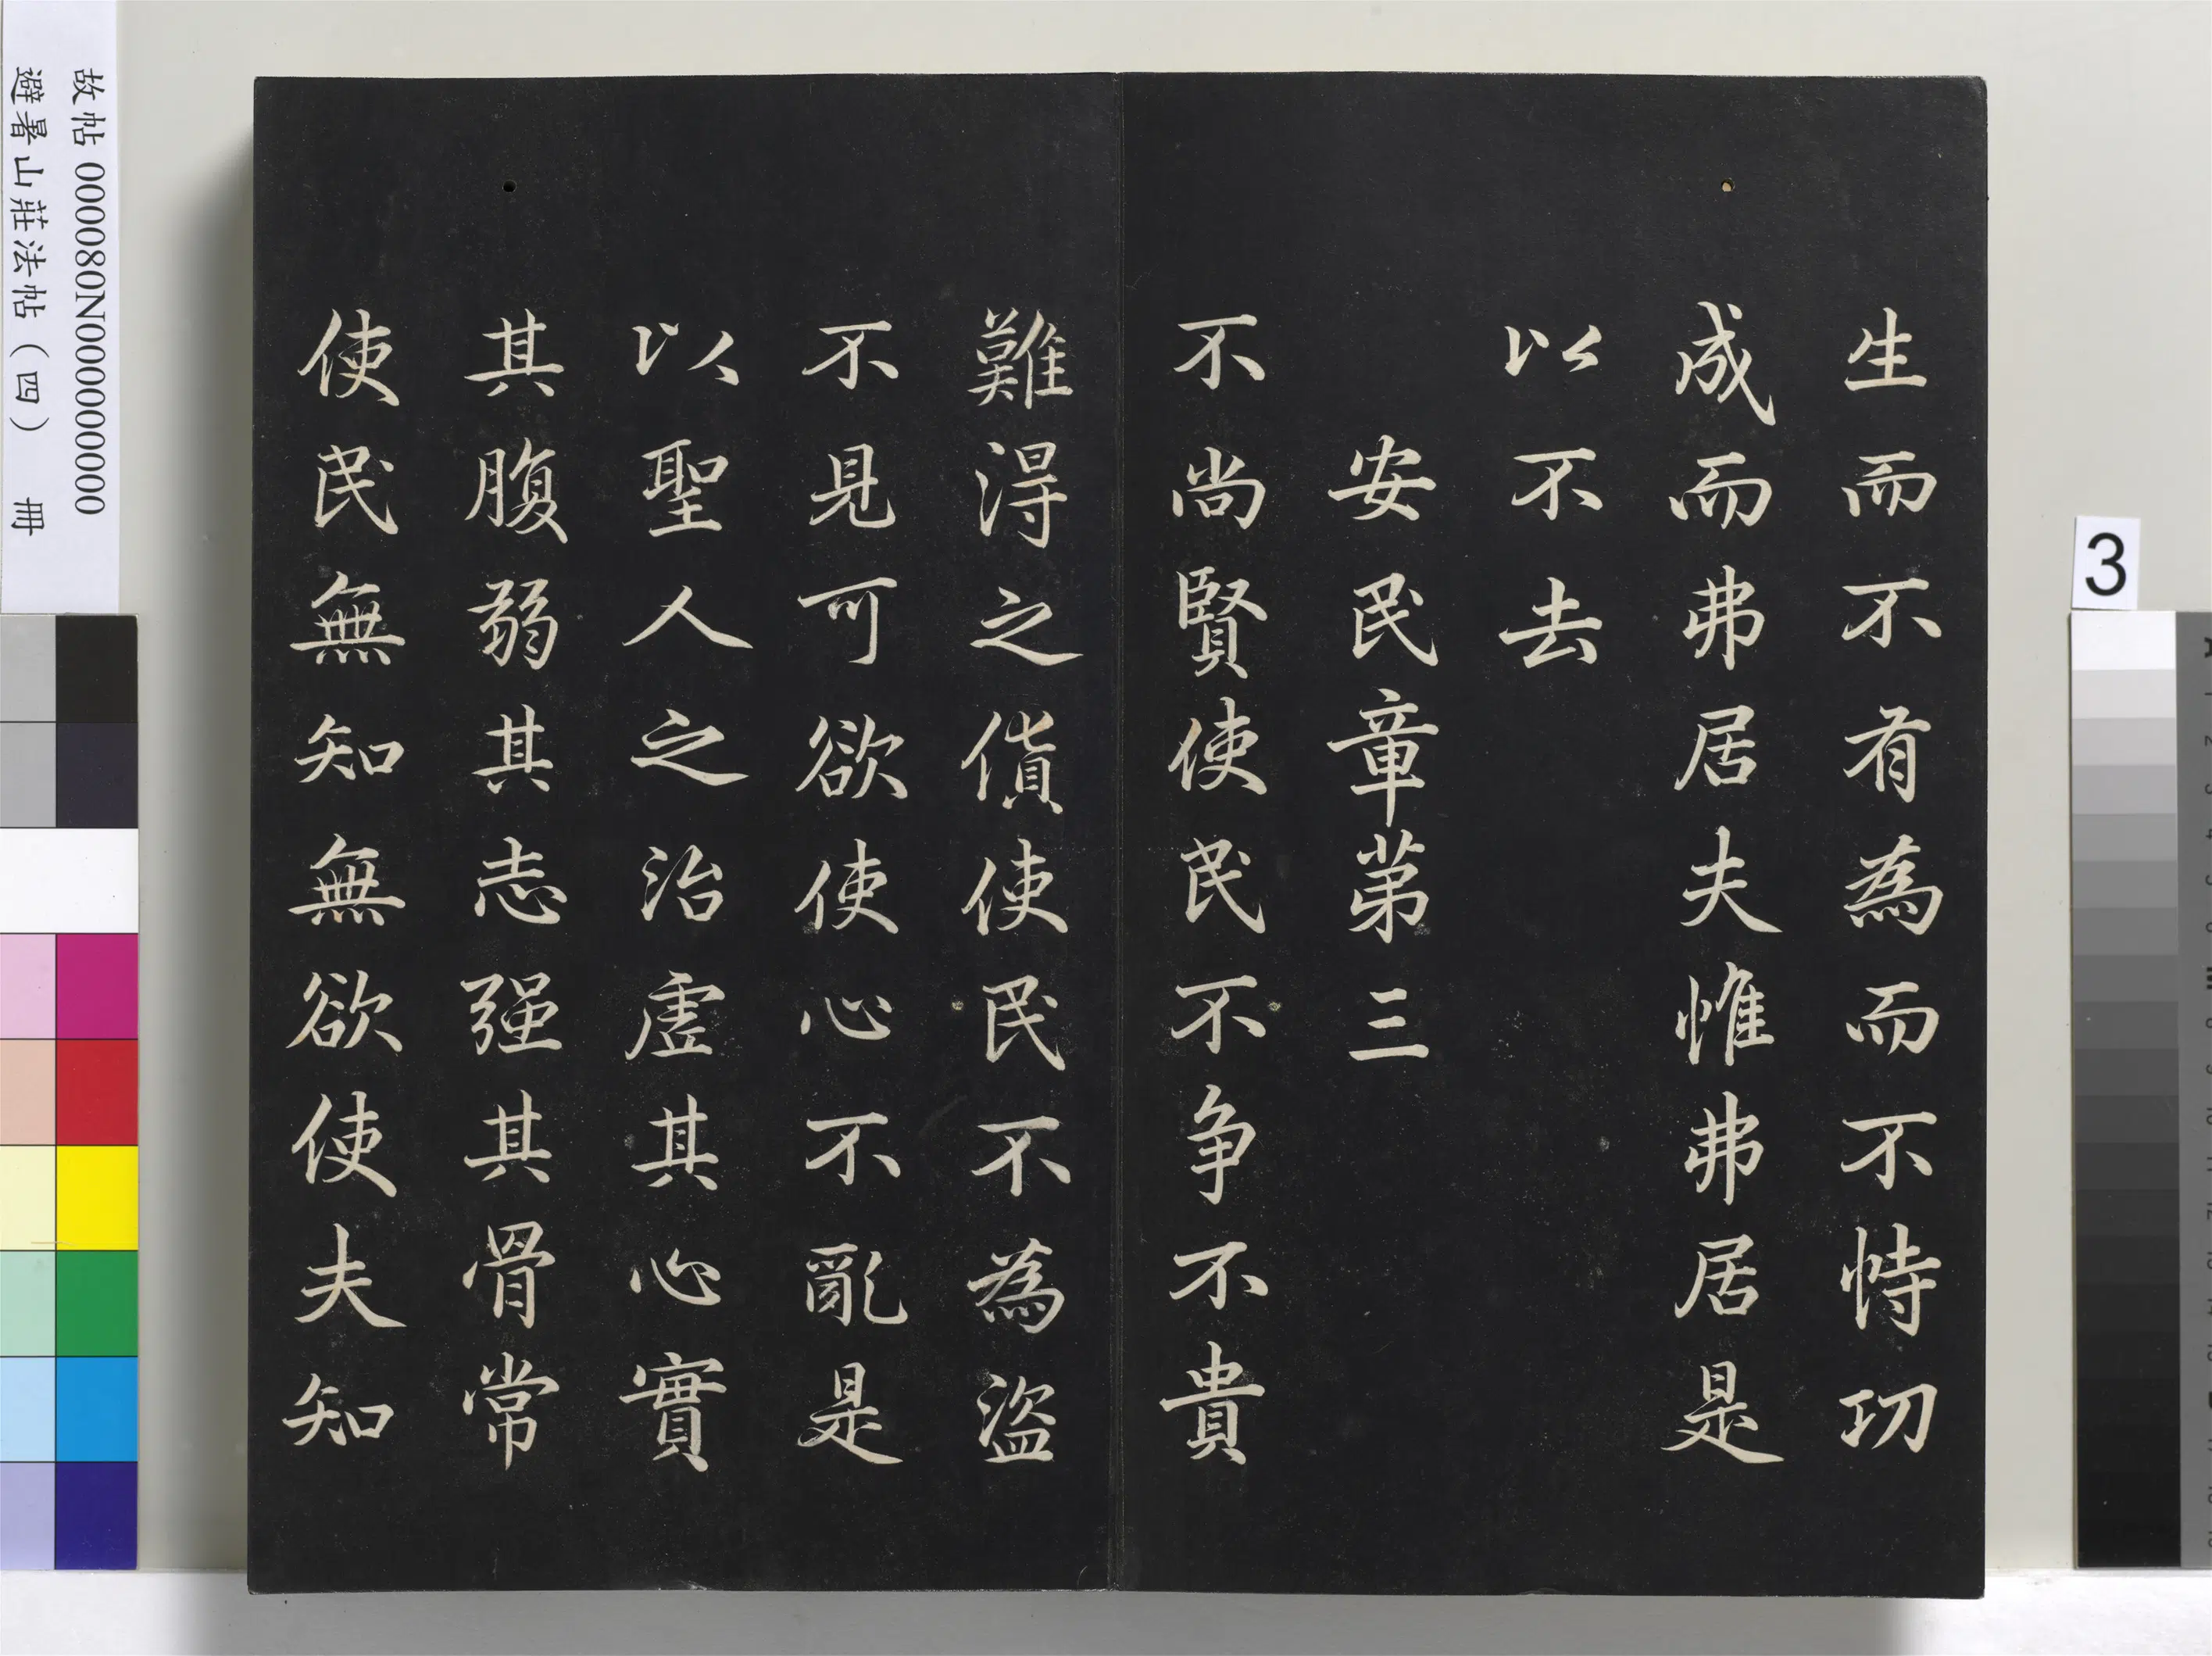 生而不有為而不恃功
成而弗居夫惟弗居是
以不去
安民章第三
不尚賢使民不争不貴
難得之貨使民不為盜
不見可欲使心不亂是
以聖人之治虛其心實
其腹弱其志强其骨常
使民無知無欲使夫知
故帖 000080N000000000
避暑山莊法帖(四) 冊
3